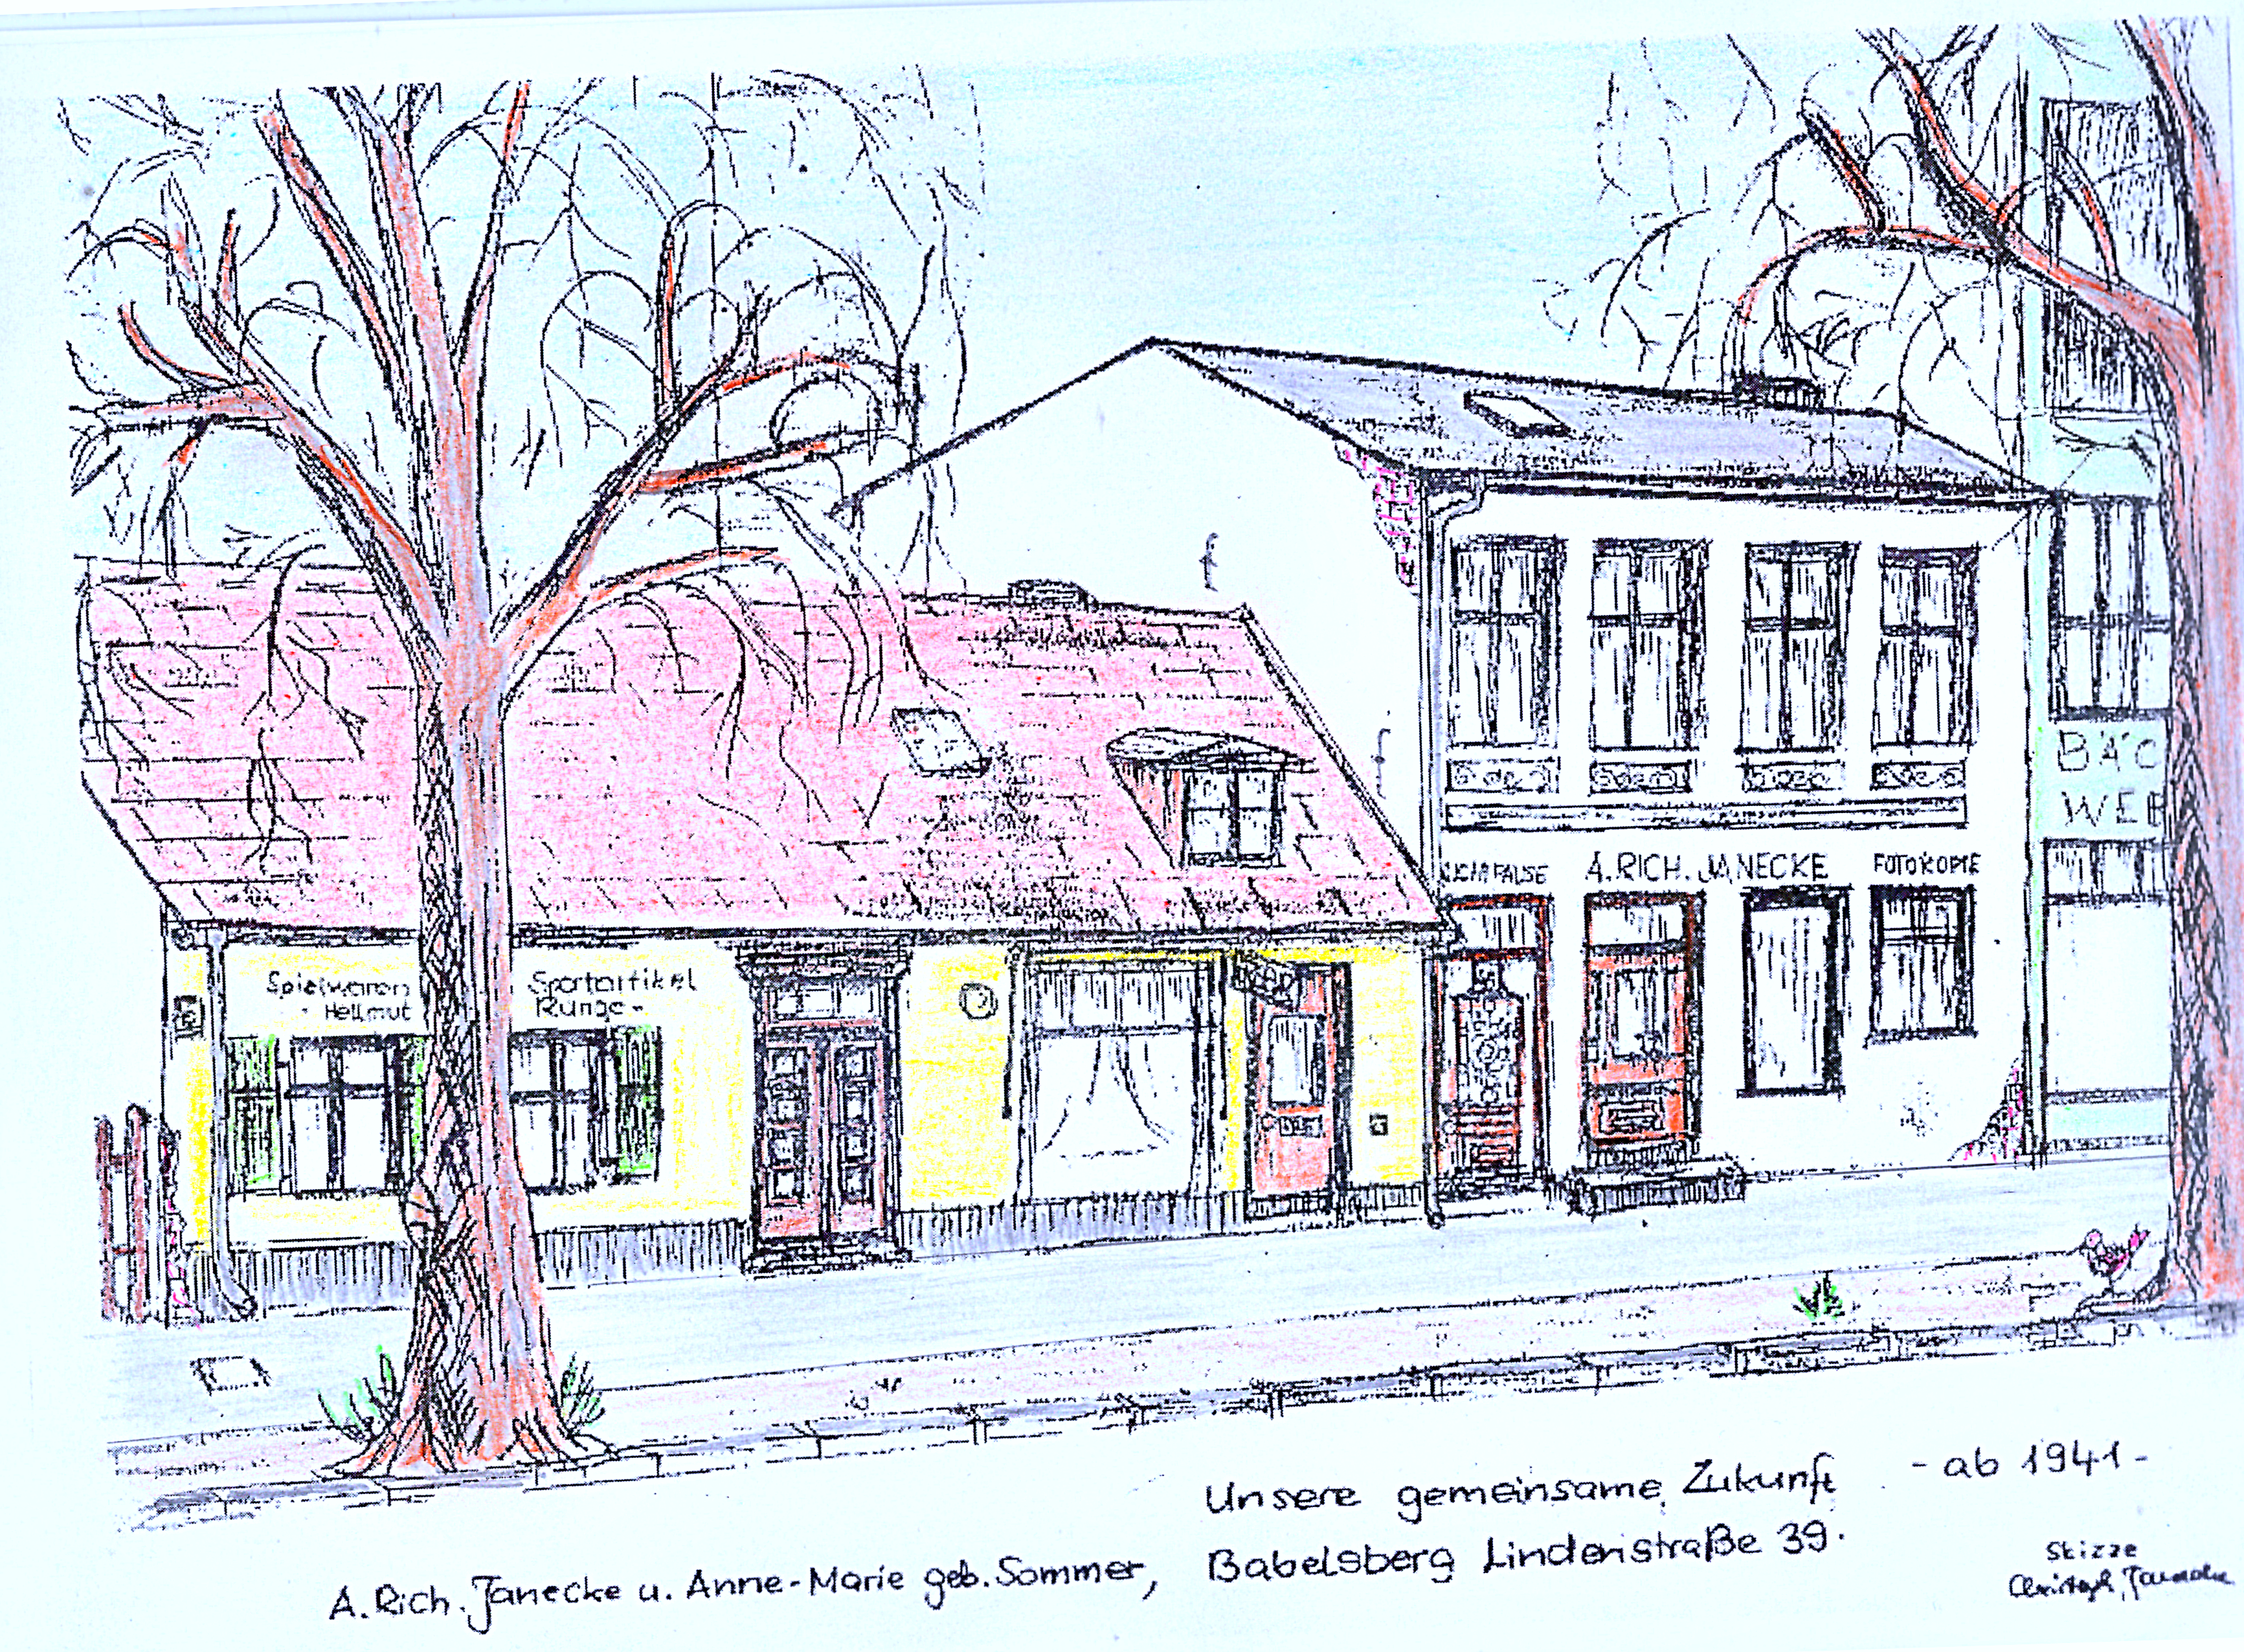 BÄC
WER
LICHTPAUSE A. RICH. JANECKE FOTOKOPIE
Spielwaren Sportartikel
- Hellmut Runge -
Unsere gemeinsame Zukunft - ab 1941 -
A. Rich. Janecke u. Anne-Marie geb. Sommer, Babelsberg Lindenstraße 39.
Skizze
Christoph Janecke